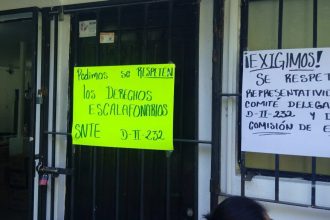 Pedimos se RESPETEN
los DERECHOS
ESCALAFONARIOS
SNTE D-II-232
¡EXIGIMOS!
SE RESPET
REPRESENTATIVID
COMITE DELEGA
D-II-232 Y D
COMISIÓN DE E